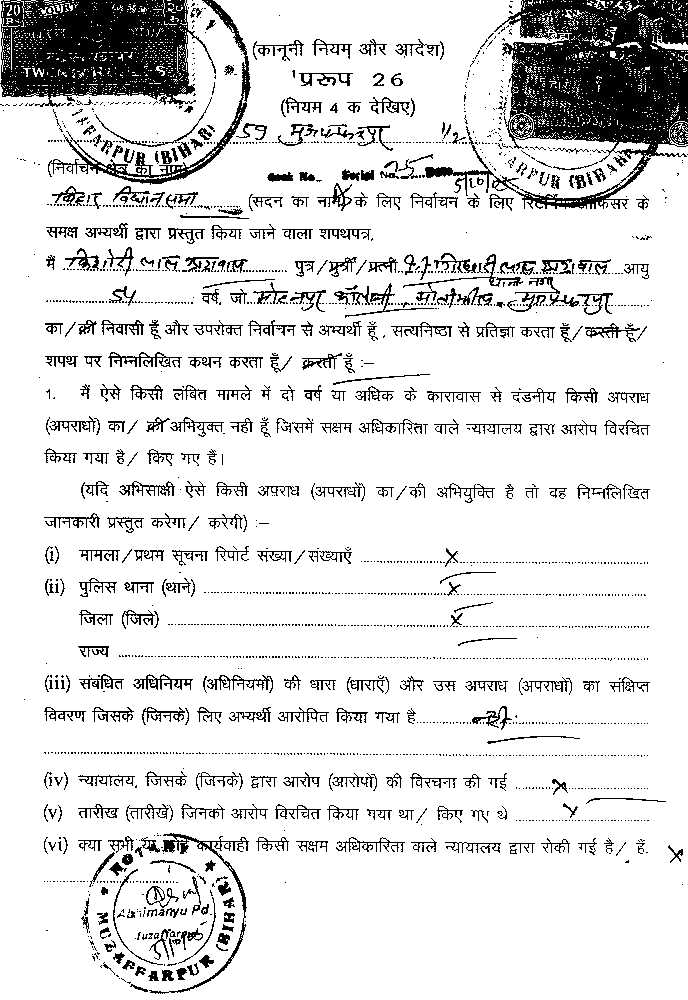 (कानूनी नियम और आदेश)
प्ररूप 26
(नियम 4 क देखिए)
59 मुजफ्फरपुर 1/2
MUZAFFARPUR (BIHAR)
(निर्वाचन क्षेत्र का नाम) Book No. Serial No. 25 Date 5/10/05
बिहार विधान सभा (सदन का नाम) के लिए निर्वाचन के लिए रिटर्निंग ऑफिसर के
समक्ष अभ्यर्थी द्वारा प्रस्तुत किया जाने वाला शपथपत्र,
मैं किशोरी लाल अग्रवाल पुत्र/पुत्री/पत्नी लाल अग्रवाल आयु
54 वर्ष, जो कॉलोनी, मुजफ्फरपुर
का/की निवासी हूँ और उपरोक्त निर्वाचन से अभ्यर्थी हूँ, सत्यनिष्ठा से प्रतिज्ञा करता हूँ/करती हूँ/
शपथ पर निम्नलिखित कथन करता हूँ/ करती हूँ :–
1. मैं ऐसे किसी लंबित मामले में दो वर्ष या अधिक के कारावास से दंडनीय किसी अपराध
(अपराधों) का/ की अभियुक्त नही हूँ जिसमें सक्षम अधिकारिता वाले न्यायालय द्वारा आरोप विरचित
किया गया है/ किए गए हैं।
(यदि अभिसाक्षी ऐसे किसी अपराध (अपराधों) का/की अभियुक्ति है तो वह निम्नलिखित
जानकारी प्रस्तुत करेगा/ करेगी) :–
(i) मामला/प्रथम सूचना रिपोर्ट संख्या/संख्याएँ x
(ii) पुलिस थाना (थाने) x
जिला (जिले) x
राज्य
(iii) संबंधित अधिनियम (अधिनियमों) की धारा (धाराएँ) और उस अपराध (अपराधों) का संक्षिप्त
विवरण जिसके (जिनके) लिए अभ्यर्थी आरोपित किया गया है
(iv) न्यायालय, जिसके (जिनके) द्वारा आरोप (आरोपों) की विरचना की गई x
(v) तारीख (तारीखें) जिनको आरोप विरचित किया गया था/ किए गए थे x
(vi) क्या सभी या कोई कार्यवाही किसी सक्षम अधिकारिता वाले न्यायालय द्वारा रोकी गई है/ हैं. x
NOTARY
Abhimanyu Pd.
Muzaffarpur
5/10/05
MUZAFFARPUR (BIHAR)